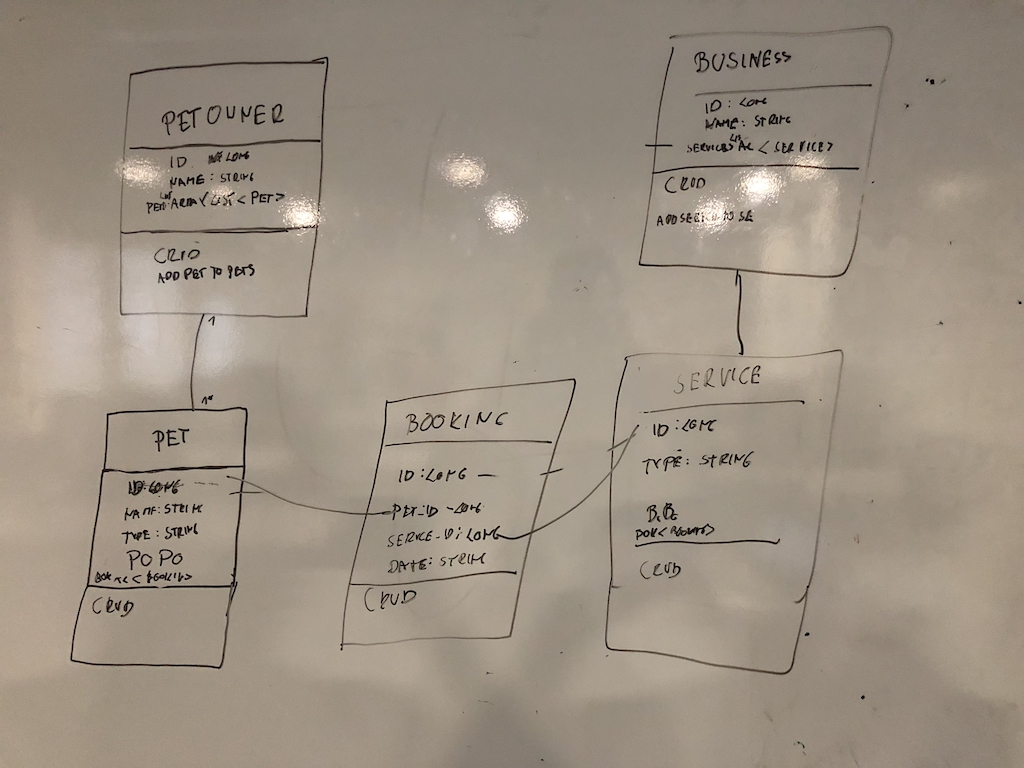 PET OWNER
ID : LONG
NAME: STRING
ARRAY LIST < PET >
CRUD
ADD PET TO PETS
1
1*
PET
ID: LONG
NAME: STRING
TYPE: STRING
PO PO
CRUD
BOOKING
ID: LONG
PET_ID - LONG
SERVICE_ID: LONG
DATE: STRING
CRUD
BUSINESS
ID: LONG
NAME: STRING
SERVICES < SERVICE >
CRUD
1
SERVICE
ID: LONG
TYPE: STRING
CRUD